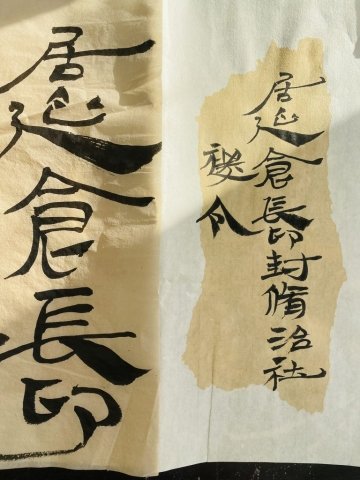 居延倉長印封脩治社
稷令
居延倉長印